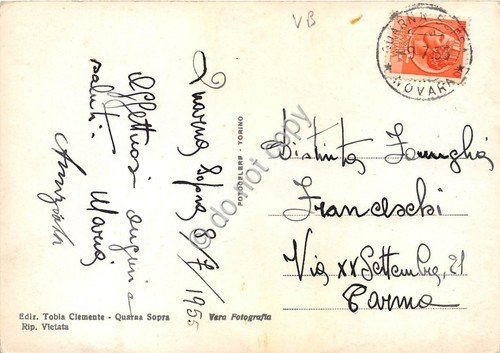 VB
QUARNA SOPRA
9.7.55
* NOVARA *
Quarna Sopra 8/7/1955
Affettuosi auguri e
saluti. Maria
Annunziata
FOTOCELERE - TORINO
Distinta Famiglia
Franceschi
Via XX Settembre, 21
Parma
Ediz. Tobia Clemente - Quarna Sopra
Rip. Vietata
Vera Fotografia
do not copy